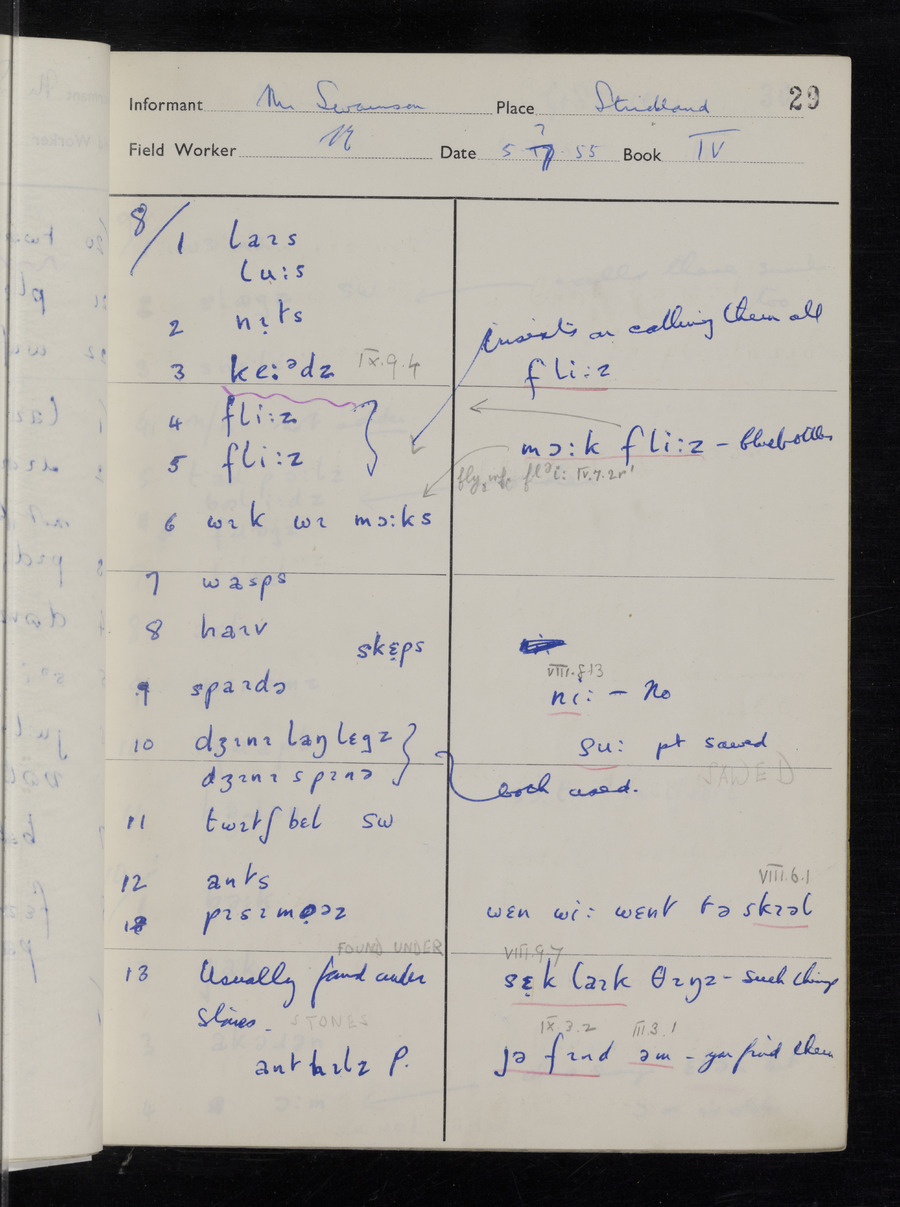 29
Informant Mr Swainson Place Strickland
Field Worker Date 5 55 Book IV
8/1 laɪs
lu:s
2 nɪts
3 ke:ᵊdz IX.9.4
insists on calling them all
fli:z
4 fli:z
5 fli:z
mɔ:k fli:z – bluebottles
IV.7.2r'
6 wɪk wɪ mɔ:ks
7 wasps
8 haɪv
skɛps
VIII.8.13
9 spaɪdə
ni: – No
10 dʒɪnɪ laŋ lɛgz
su: pt sawed
SAWED
dʒɪnɪ spɪnə
both used.
11 twɪtʃ bɛl sw
12 ants
VIII.6.1
13 pɪsɪmɔəz
wɛn wi: wɛnt tə skɪəl
FOUND UNDER
VIII.9.7
13 Usually found under
sɛk laɪk θɪŋz – such things
stones. STONES
IX.3.2 III.3.1
jə fɪnd əm – you find them
ant hɪlz P.